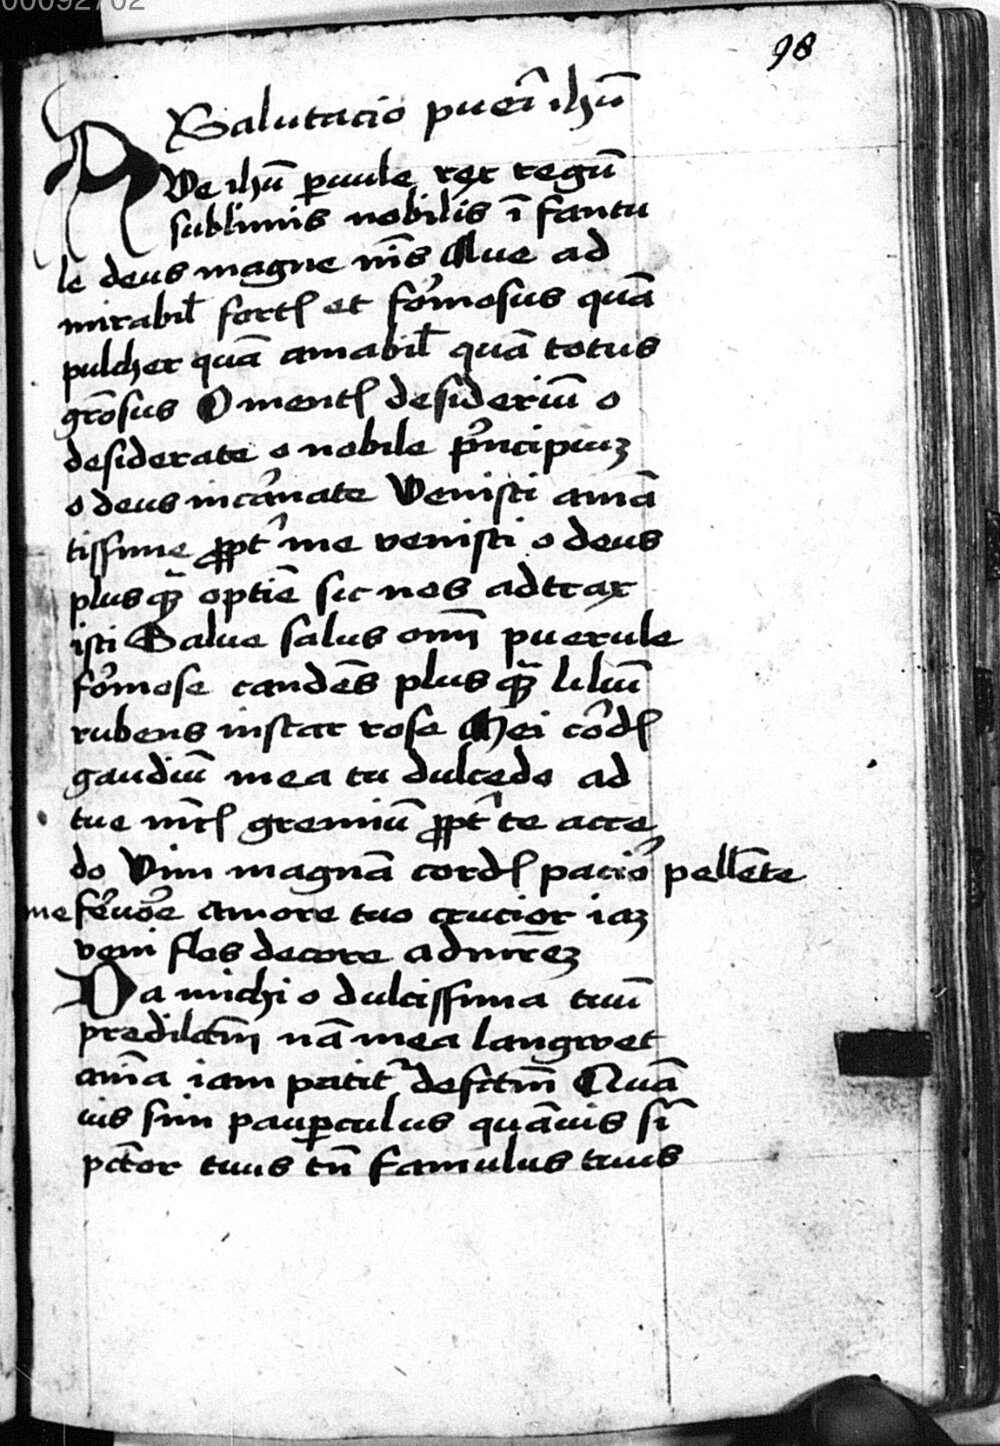 00092702
98
Salutacio pueri ihū
AVe ihū paruule rex regū
sublimis nobilis ī fantu
le deus magne nīs Aue ad
mirabil fortꝭ et formosus quā
pulcher quā amabil quā totus
grōsus O mentꝭ desideriū o
desiderate o nobile pͥncipiuꝫ
o deus incarnate Venisti amā
tissime ꝓpt me venisti o deus
plusqꝫ optiē sic nos adtrax
isti Salue salus om̄ puerule
formose candēs plus qꝫ liliū
rubens instar rose Mei cordꝭ
gaudiū mea tu dulcedo ad
tue mr̄ꝭ gremiū ꝓpt te acce
do Vim magnā cordꝭ pacior pellēte
me feruore amore tuo crucior iaꝫ
veni flos decore admireꝫ
Da michi o dulcissima tuū
predilcm̄ nā mea langwet
aīa iam patit defctm̄ Quā
uis sim pauꝑculus quāuis sī
pctor tuus tn̄ famulus tuus